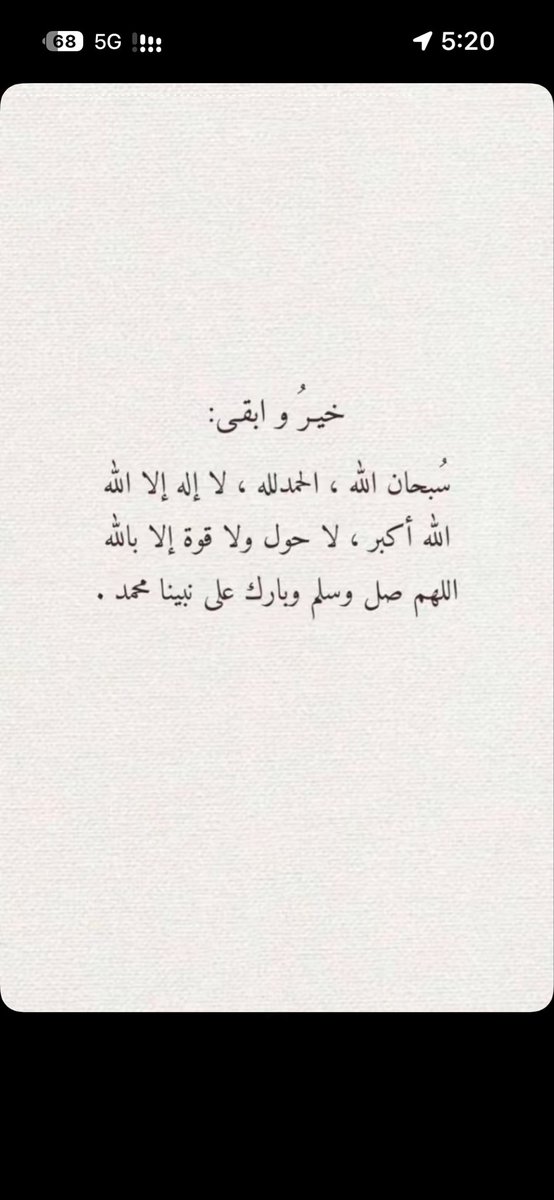 68 5G 5:20
خيرُ و ابقى:
سُبحان الله ، الحمدلله ، لا إله إلا الله
الله أكبر ، لا حول ولا قوة إلا بالله
اللهم صل وسلم وبارك على نبينا محمد .